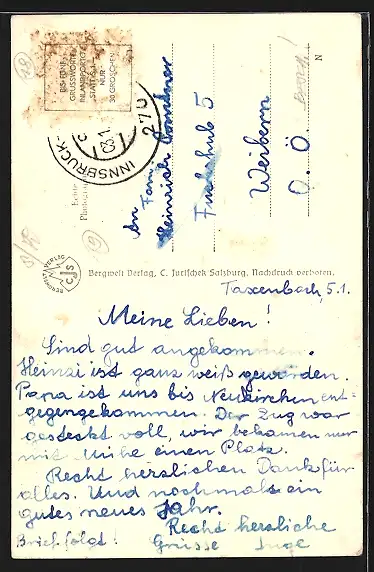 BIS FÜNF
GRUSSWORTE
INLANDPORTO
STATT S 1.-
NUR
30 GROSCHEN
INNSBRUCK
270
Bergwelt Verlag, C. Jurischek Salzburg. Nachdruck verboten.
An
Fam.
Heinrich
Fuchshub 5
Weibern
O. Ö.
Taxenbach, 5.1.
Meine Lieben!
Sind gut angekommen.
Heinzi ist ganz weiß geworden.
Papa ist uns bis Neukirchen ent-
gegengekommen. Der Zug war
gesteckt voll, wir bekamen nur
mit Mühe einen Platz.
Recht herzlichen Dank für
alles. Und nochmals ein
gutes neues Jahr.
Recht herzliche
Brief folgt! Grüsse Inge